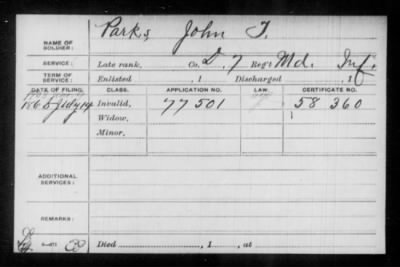 NAME OF SOLDIER: Parks, John T.
SERVICE: Late rank, Co. D, 7 Reg't Md. Inf.
TERM OF SERVICE: Enlisted , 1 Discharged , 1
DATE OF FILING. CLASS. APPLICATION NO. LAW. CERTIFICATE NO.
1865 July 14 Invalid, 77501 58360
Widow,
Minor,
ADDITIONAL SERVICES:
REMARKS:
Died , 1 , at